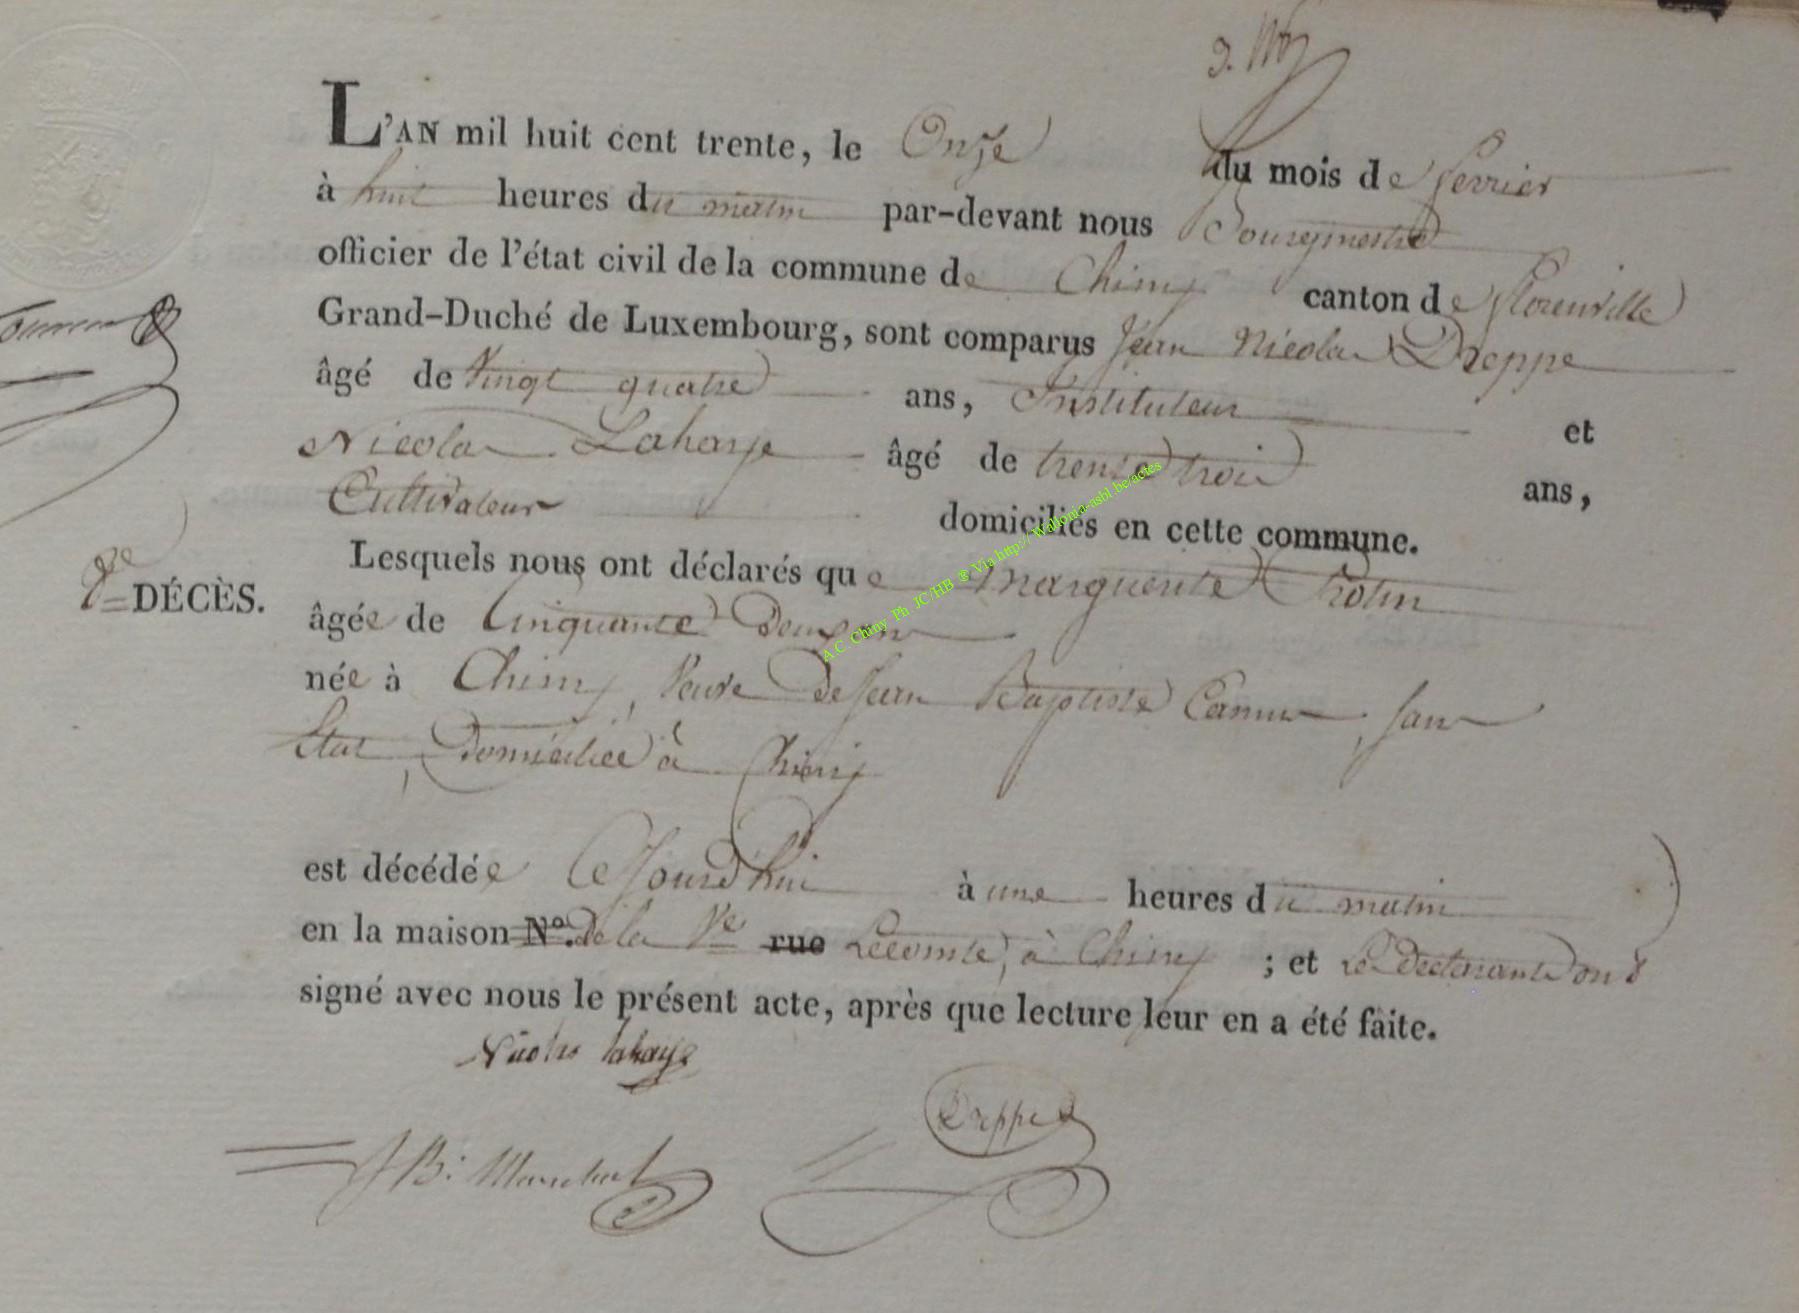 L'AN mil huit cent trente, le Onze du mois de fevrier
à huit heures du matin par-devant nous Bourgmestre
officier de l'état civil de la commune de Chiny canton de florenville
Grand-Duché de Luxembourg, sont comparus Jean Nicolas Dreppe
âgé de Vingt quatre ans, Instituteur et
Nicolas Lahaye âgé de trente trois ans,
Cultivateur domiciliés en cette commune.
8e DÉCÈS.
Lesquels nous ont déclarés que Marguerite
âgée de Cinquante Deux ans
née à Chiny, Veuve De Jean Baptiste Camus, sans
Etat, Domiciliée à Chiny
est décédée Ce Jourd'hui à une heures du matin
en la maison No. de la Ve rue Lecomte, à Chiny ; et Les declarants ont
signé avec nous le présent acte, après que lecture leur en a été faite.
Nicolas lahaye
Dreppe
JB: Marechal
A.C. Chiny Ph. JC/HB ® Via http:// Wallonia-asbl.be/actes